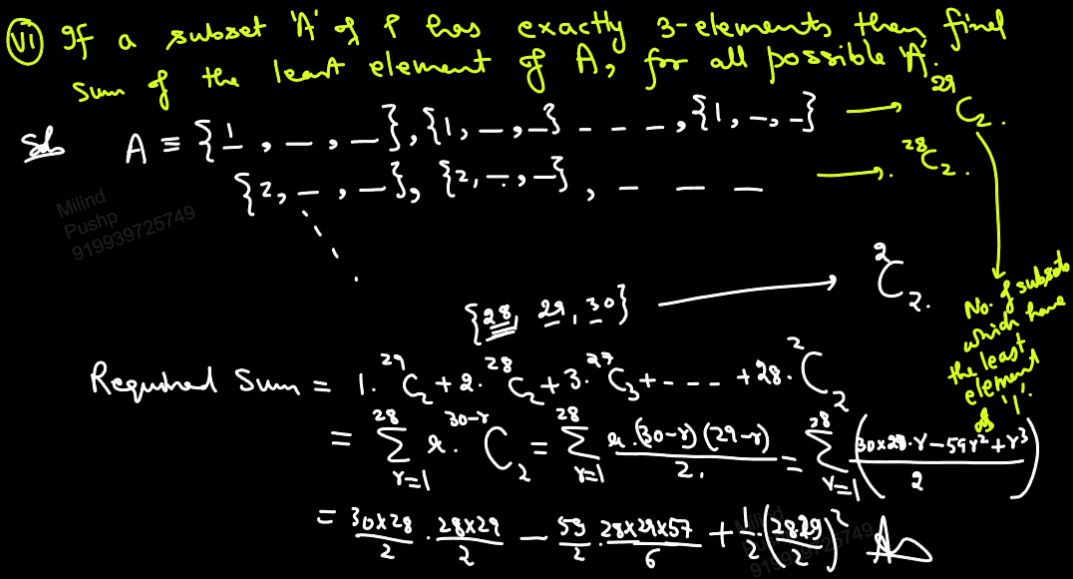 (VI) If a subset 'A' of P has exactly 3-elements then find
sum of the least element of A, for all possible 'A'.
Sol. A ≡ {1, –, –}, {1, –, –} - - - -, {1, –, –} → ²⁹C₂.
{2, –, –}, {2, –, –}, – – – → ²⁸C₂.
{28, 29, 30} → ²C₂.
No. of subsets
which have
the least
element
as '1'.
Required Sum = 1.²⁹C₂ + 2.²⁸C₂ + 3.²⁷C₃ + - - - - + 28.²C₂
= ∑_{r=1}^{28} r.³⁰⁻ʳC₂ = ∑_{r=1}^{28} r.(30-r)(29-r)/2. = ∑_{r=1}^{28} ((30×29.r – 59r² + r³)/2)
= 30×28/2 . 28×29/2 – 59/2 . 28×29×57/6 + 1/2.(28.29/2)² Ans
Milind
Pushp
919939725749